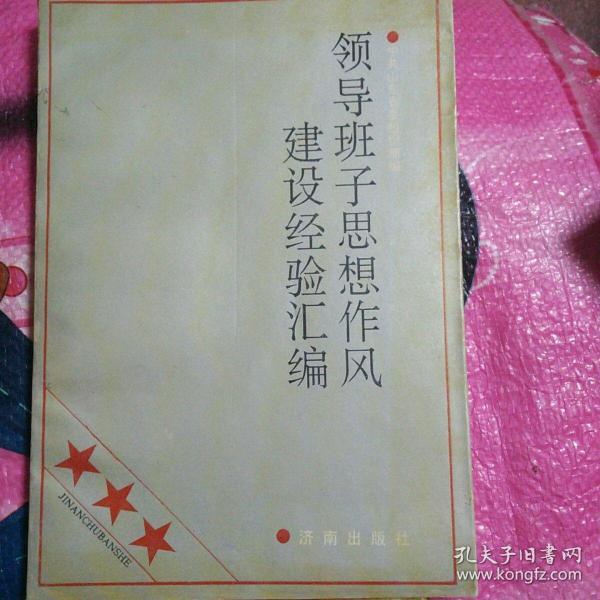 领导班子思想作风
建设经验汇编
JINANCHUBANSHE
济南出版社
孔夫子旧书网
www.kongfz.com